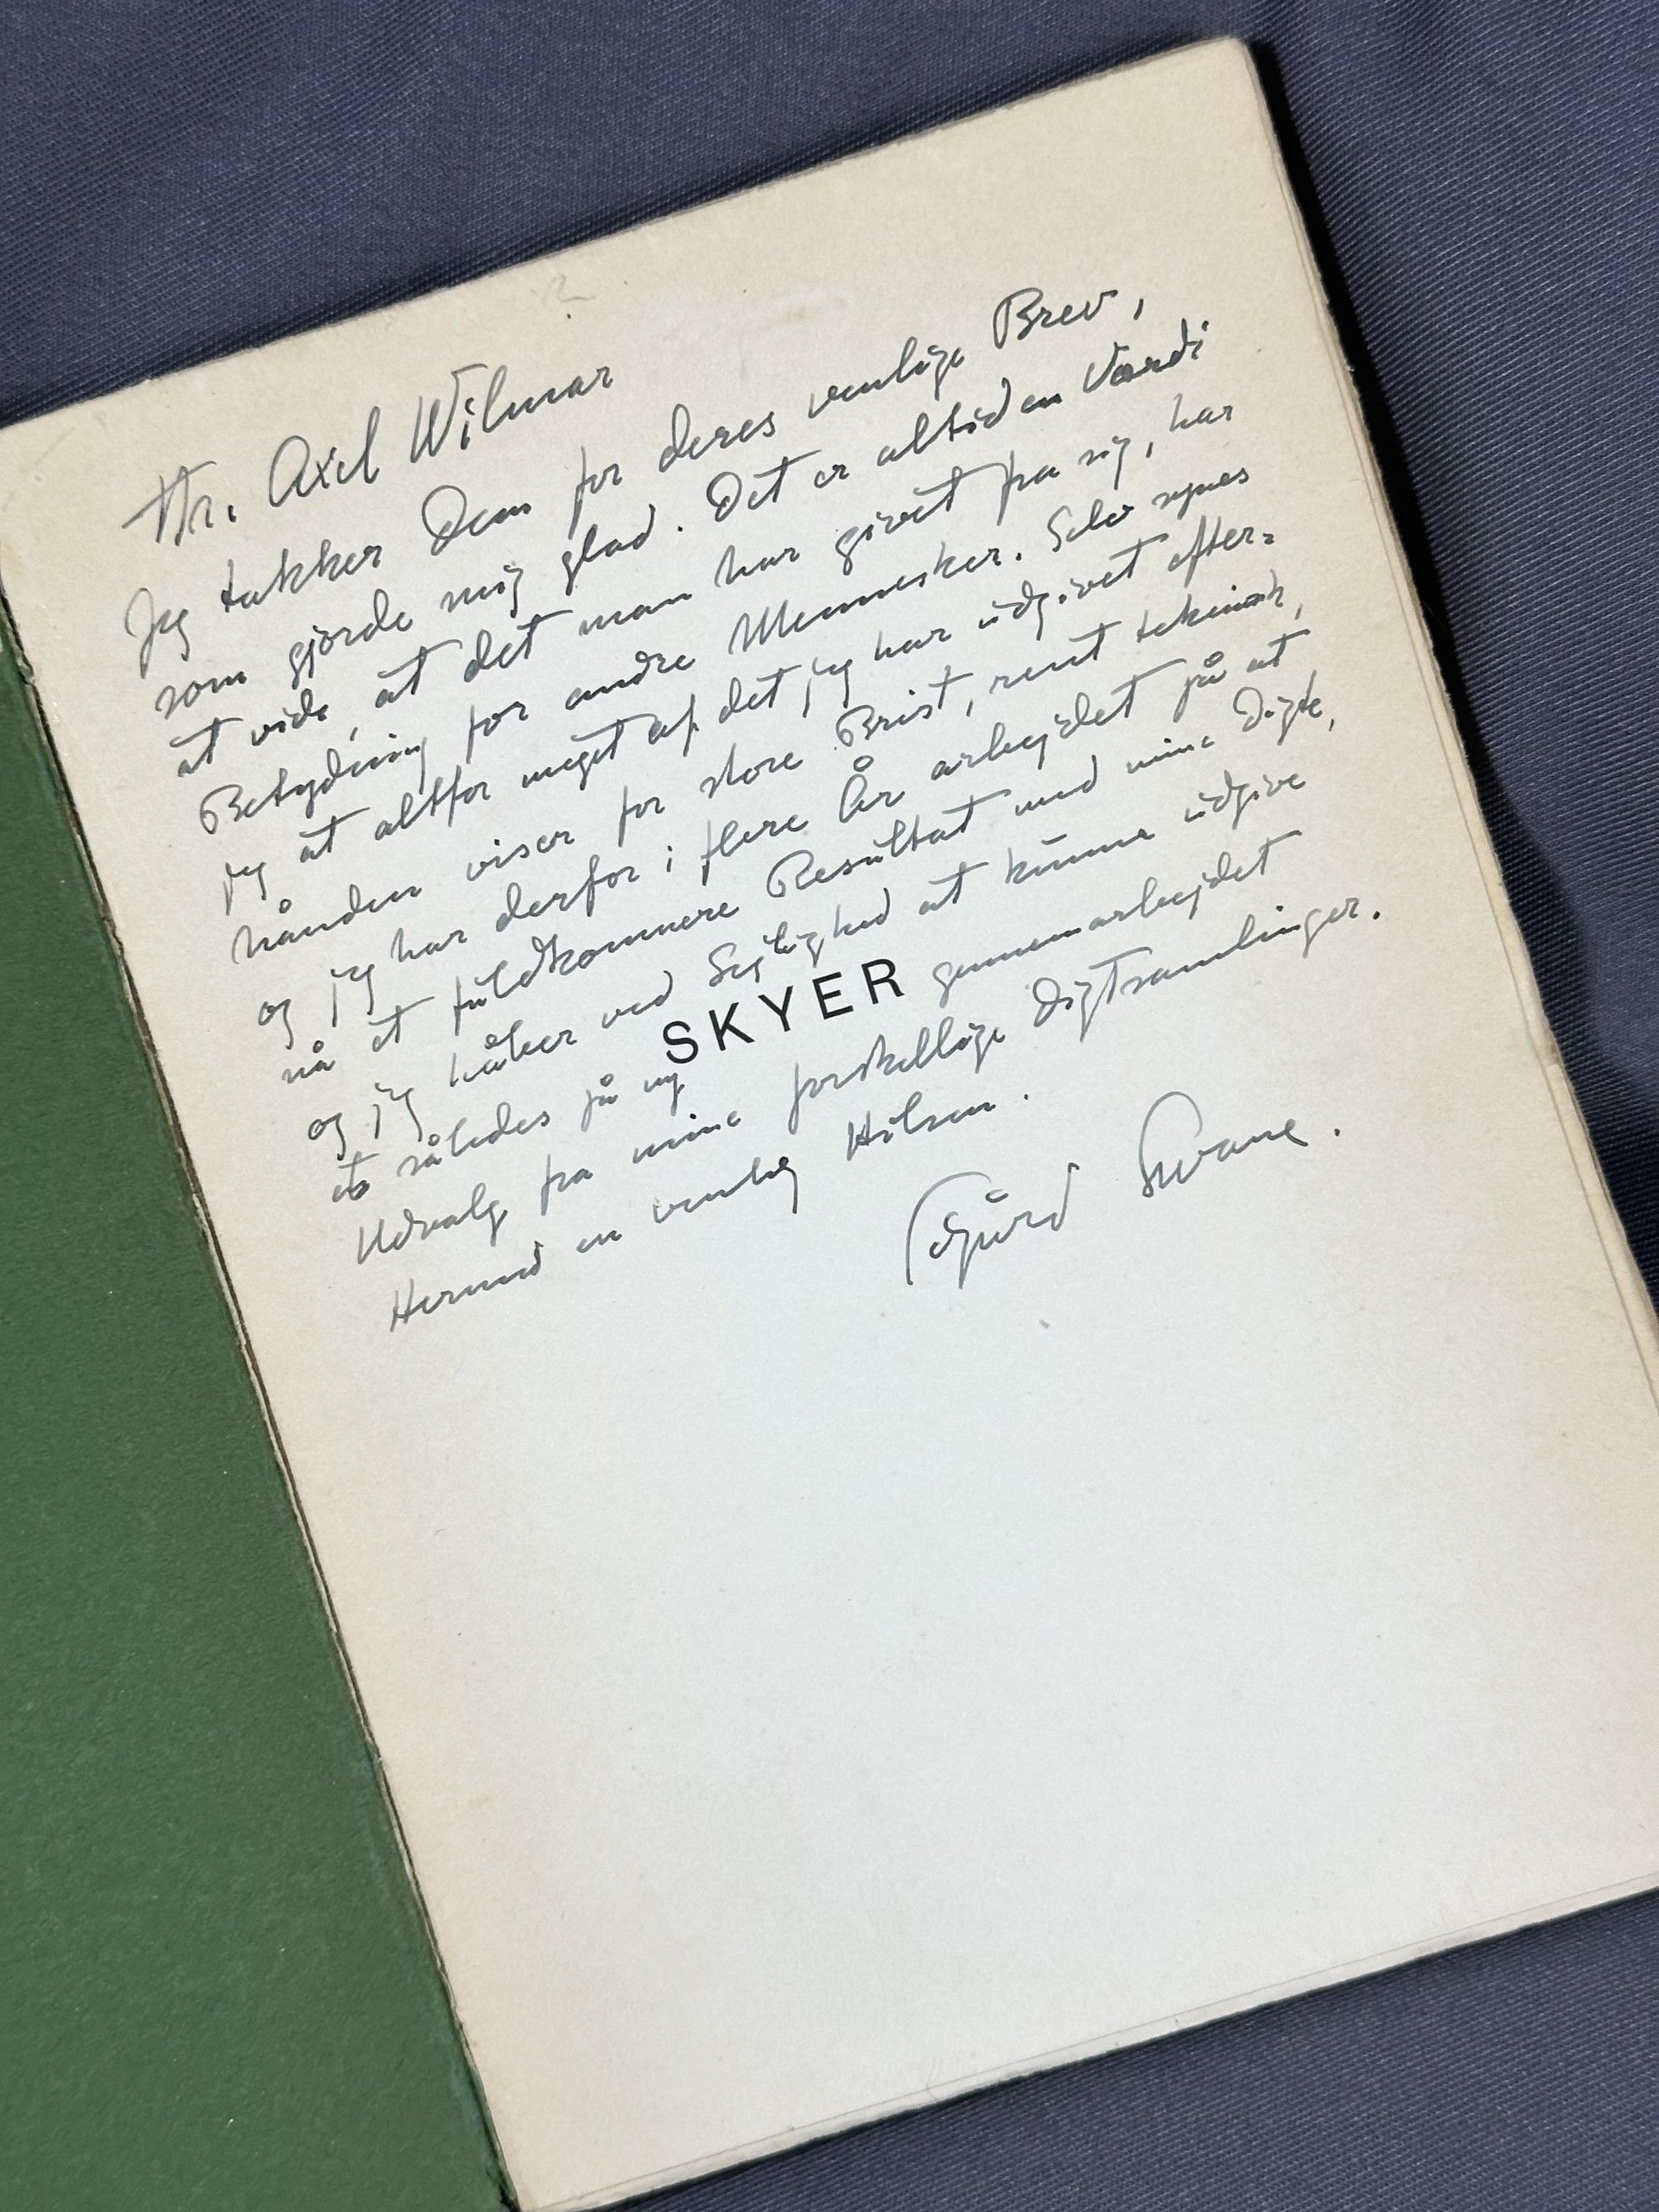 Hr. Axel Wilmar
Jeg takker Dem for deres venlige Brev,
som gjorde mig glad. Det er altid en Værdi
at vide, at det man har givet fra sig, har
Betydning for andre Mennesker. Selv synes
jeg at altfor meget af det jeg har udgivet efter-
hånden viser for store Brist, rent teknisk,
og jeg har derfor i flere År arbejdet på at
nå et fuldkomnere Resultat med mine Digte,
og jeg håber ved Lejlighed at kunne udgive
et således på ny gennemarbejdet
SKYER
Udvalg fra mine forskellige Digtsamlinger.
Hermed en venlig Hilsen.
Sigurd Swane.